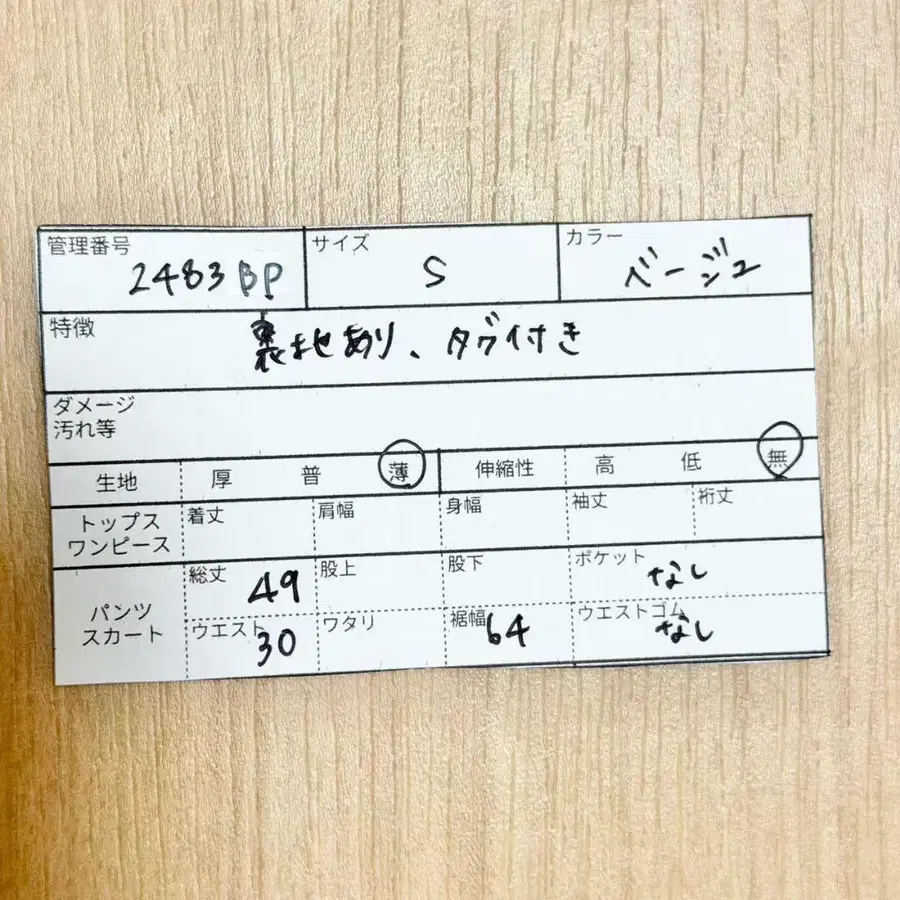 管理番号 2483BP サイズ S カラー ベージュ
特徴 裏地あり、タグ付き
ダメージ
汚れ等
生地 厚 普 薄 伸縮性 高 低 無
トップス
ワンピース
着丈 肩幅 身幅 袖丈 裄丈
パンツ
スカート
総丈 49 股上 股下 ポケット なし
ウエスト 30 ワタリ 裾幅 64 ウエストゴム なし